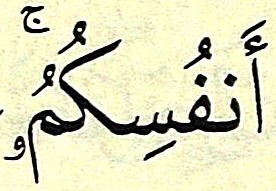 أَنفُسِكُمُۥۚ